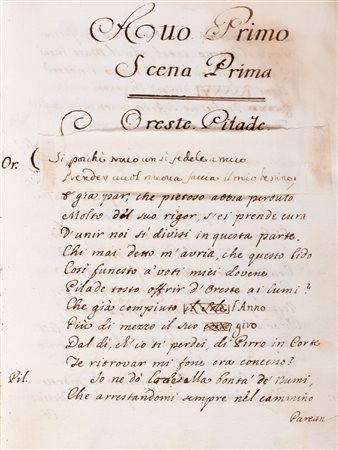 Atto Primo
Scena Prima
Oreste. Pilade
Or. Si poichè trovo un sì fedele amico
Prender vuol nuova faccia il mio destino;
E già par, che pietoso abbia perduto
Molto del suo rigor, s'ei prende cura
D'unir noi sì divisi in questa parte.
Chi mai detto m'avria, che questo lido
Così funesto a' voti miei dovene
Pilade tosto offrir d'Oreste ai lumi?
Che già compiuto l'Anno
Più di mezzo il suo giro
Dal dì ch'io ti perdei, di Pirro in Corte
Te ritrovar mi fone ora conceno?
Pil. Io ne dò lode alla bontà de' Numi,
Che arrestandomi sempre nel cammino
Parean